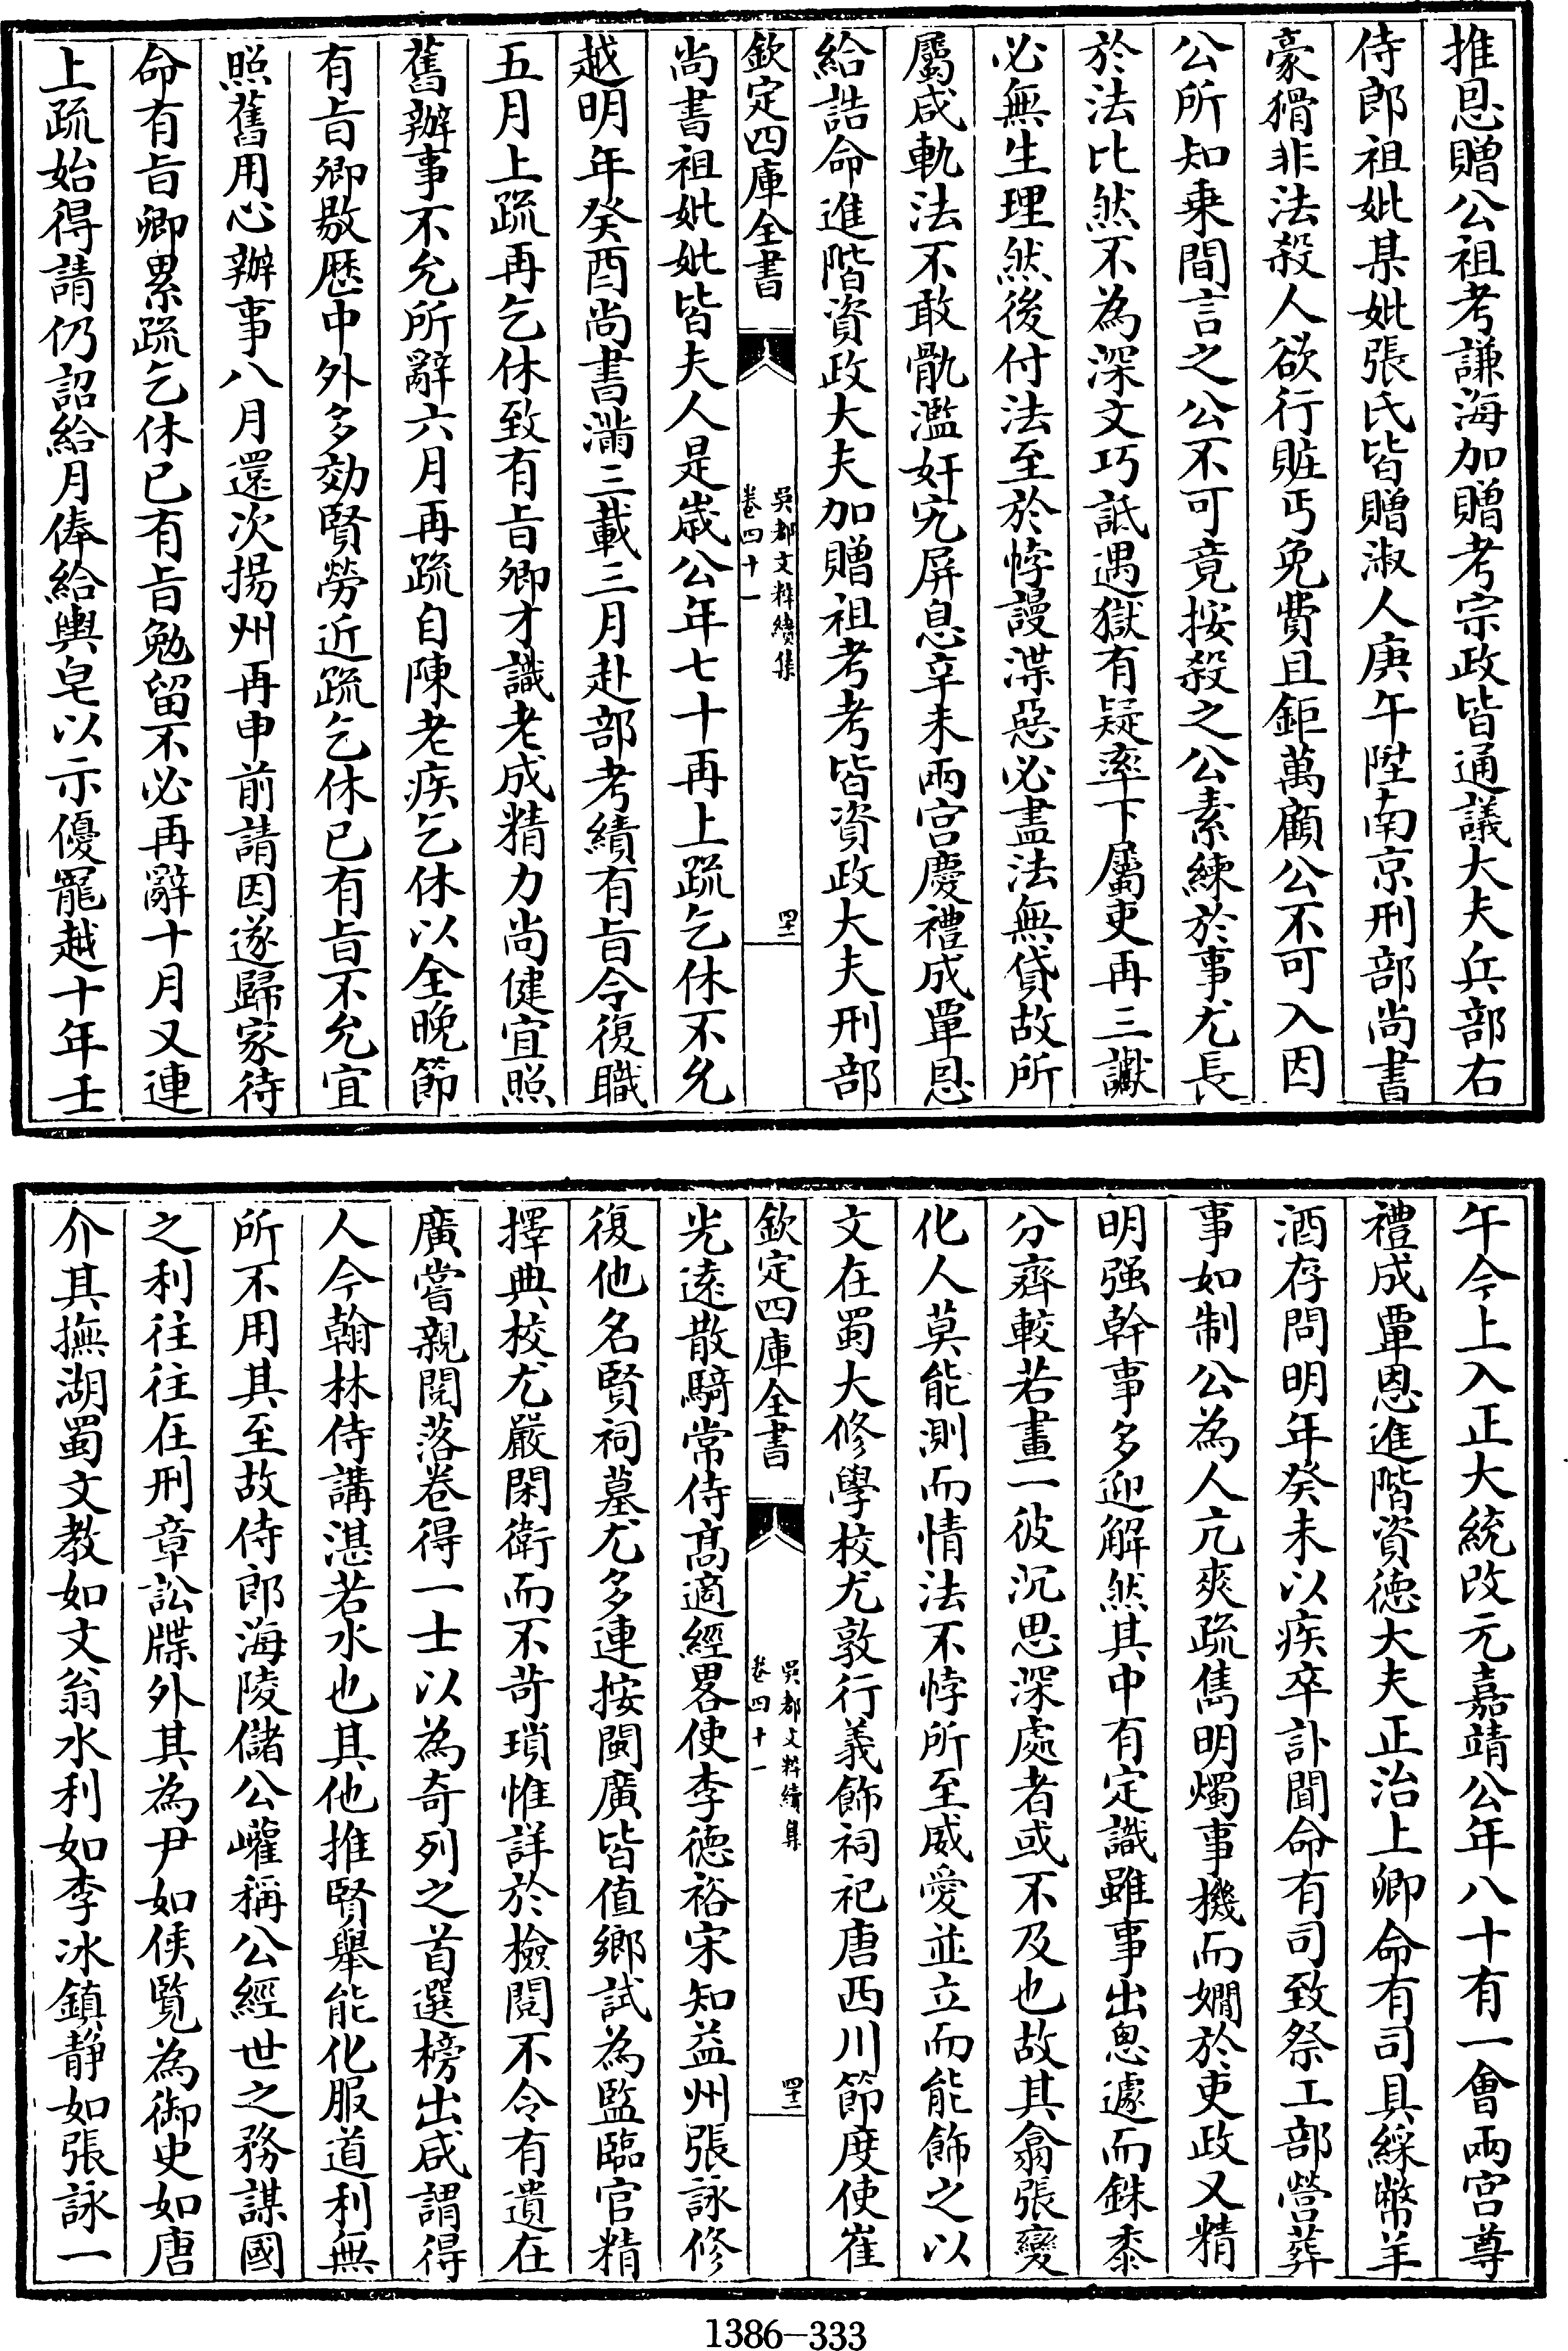 推恩贈公祖考謙海加贈考宗政皆通議大夫兵部右
侍郎祖妣某妣張氏皆贈淑人庚午陞南京刑部尚書
豪猾非法殺人欲行賍丐免費且鉅萬顧公不可入因
公所知乗間言之公不可竟按殺之公素練於事尤長
於法比然不為深文巧詆遇獄有疑率下屬吏再三讞
必無生理然後付法至於悖謾渫惡必盡法無貸故所
屬咸軌法不敢骩濫奸宄屏息辛未兩宫慶禮成覃恩
給誥命進階資政大夫加贈祖考考皆資政大夫刑部
欽定四庫全書
吳都文粹續集
卷四十一
四十
尚書祖妣妣皆夫人是嵗公年七十再上疏乞休不允
越明年癸酉尚書滿三載三月赴部考績有旨令復職
五月上疏再乞休致有旨卿才識老成精力尚健宜照
舊辦事不允所辭六月再疏自陳老疾乞休以全晚節
有旨卿敭歴中外多効賢勞近疏乞休已有旨不允宜
照舊用心辦事八月還次揚州再申前請因遂歸家待
命有旨卿累疏乞休已有旨勉留不必再辭十月又連
上疏始得請仍詔給月俸給輿皂以示優寵越十年壬
午今上入正大統改元嘉靖公年八十有一會兩宫尊
禮成覃恩進階資德大夫正治上卿命有司具綵幣羊
酒存問明年癸未以疾卒訃聞命有司致祭工部營葬
事如制公為人亢爽疏雋明燭事機而嫺於吏政又精
明强幹事多迎解然其中有定識雖事出恩遽而銖黍
分齊較若畫一彼沉思深處者或不及也故其翕張變
化人莫能測而情法不悖所至威愛並立而能飾之以
文在蜀大修學校尤敦行義飾祠祀唐西川節度使崔
欽定四庫全書
吳都文粹續集
卷四十一
四十一
光遠散騎常侍髙適經畧使李德裕宋知益州張詠修
復他名賢祠墓尤多連按閩廣皆值鄉試為監臨官精
擇典校尤嚴閑衛而不苛瑣惟詳於檢閲不令有遺在
廣嘗親閲落卷得一士以為奇列之首選榜出咸謂得
人今翰林侍講湛若水也其他推賢舉能化服道利無
所不用其至故侍郎海陵儲公巏稱公經世之務謀國
之利往往在刑章訟牒外其為尹如倪覧為御史如唐
介其撫湖蜀文教如文翁水利如李冰鎮静如張詠一
1386-333